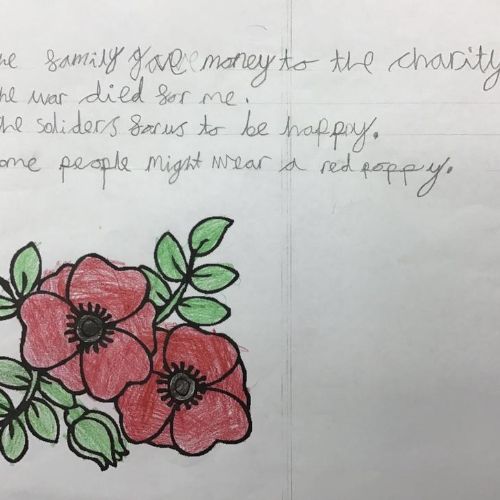 he family gave money to the charity
he war died for me.
the soliders forus to be happy.
ome people might wear a red poppy.